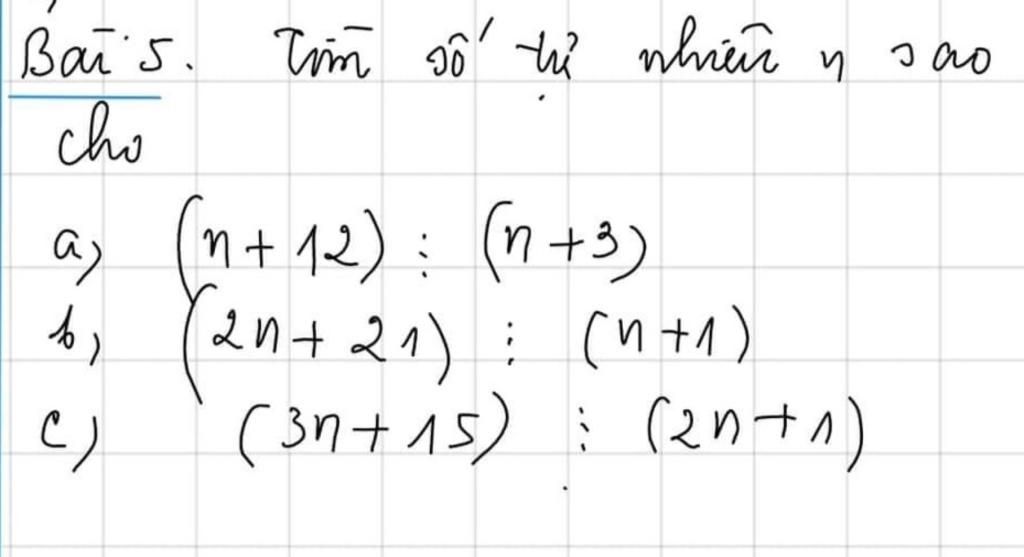 Bài 5. Tìm số tự nhiên n sao
cho
a) (n + 12) ⋮ (n + 3)
b) (2n + 21) ⋮ (n + 1)
c) (3n + 15) ⋮ (2n + 1)